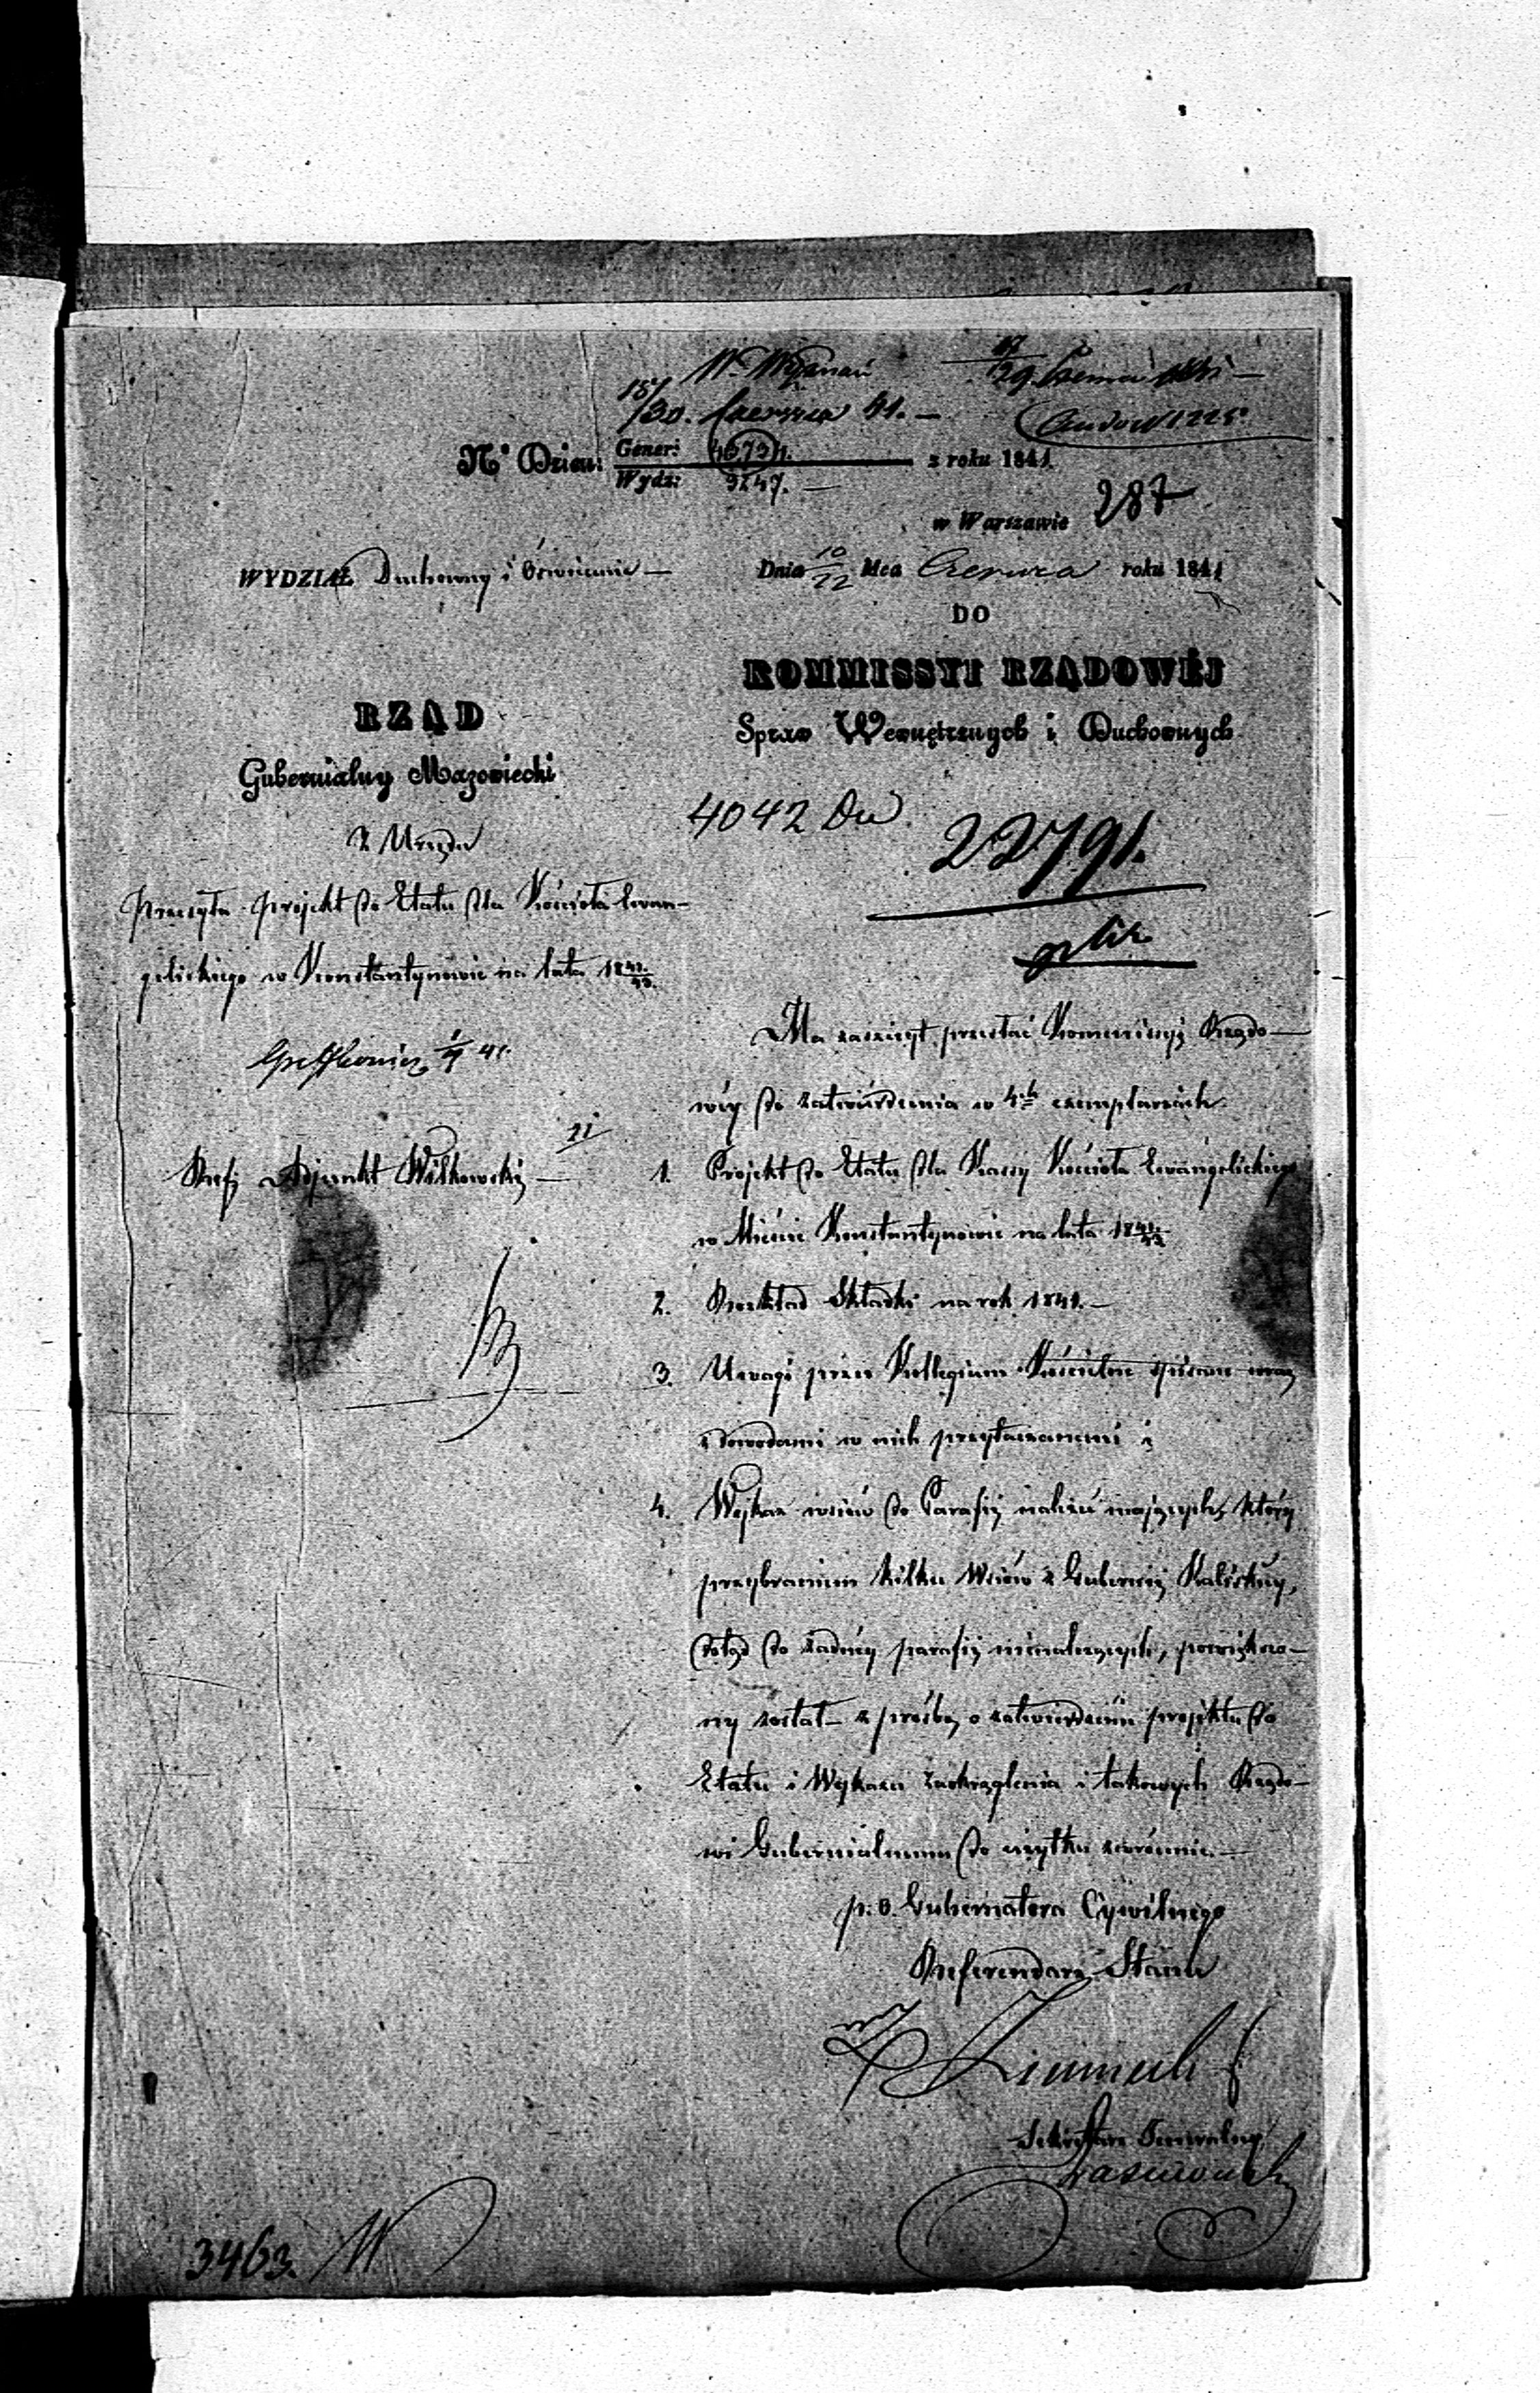 18/30. Czerwca 41. —
29 Czerwca 1841 —
No Dzien: Gener: 46734. z roku 1841.
Wydz: 9247. —
w Warszawie 287
WYDZIAŁ Duchowny i Oświecenia —
Dnia 10/22 Mca Czerwca roku 1841
DO
KOMMISSYI RZĄDOWÉJ
Spraw Wewnętrznych i Duchownych
RZĄD
Gubernialny Mazowiecki
4042 Du
22791.
Z Urzędu
Przesyła projekt do Etatu dla Kościoła Ewan-
gelickiego w Konstantynowie na lata 1841/43.
Ref; Adjunkt Witkowski —
Ma zaszczyt przesłać Kommissyi Rządo-
wéy do zatwierdzenia w 4ch exemplarzach
1. Projekt do Etatu dla Kassy Kościoła Ewangelickiego
w Mieście Konstantynowie na lata 1841/43
2. Rozkład Składki na rok 1841. —
3. Uwagi przez Kollegium Kościelne spisane wraz
z dowodami w nich przytaczanemi i
4. Wykaz wsiów do Parafij należeć mających, który
przybraniem kilku Wsiów z Gubernij Kaliskiey,
dotąd do żadnéy parafij nienależących, powiększo-
ny został — z prośbą o zatwierdzenie projektu do
Etatu i Wykazu zaokrąglenia i takowych Rządo-
wi Gubernialnemu do użytku zwrócenie. —
p. o. Gubernatora Cywilnego
Referendarz Stanu
Sekretarz Jeneralny
3463.